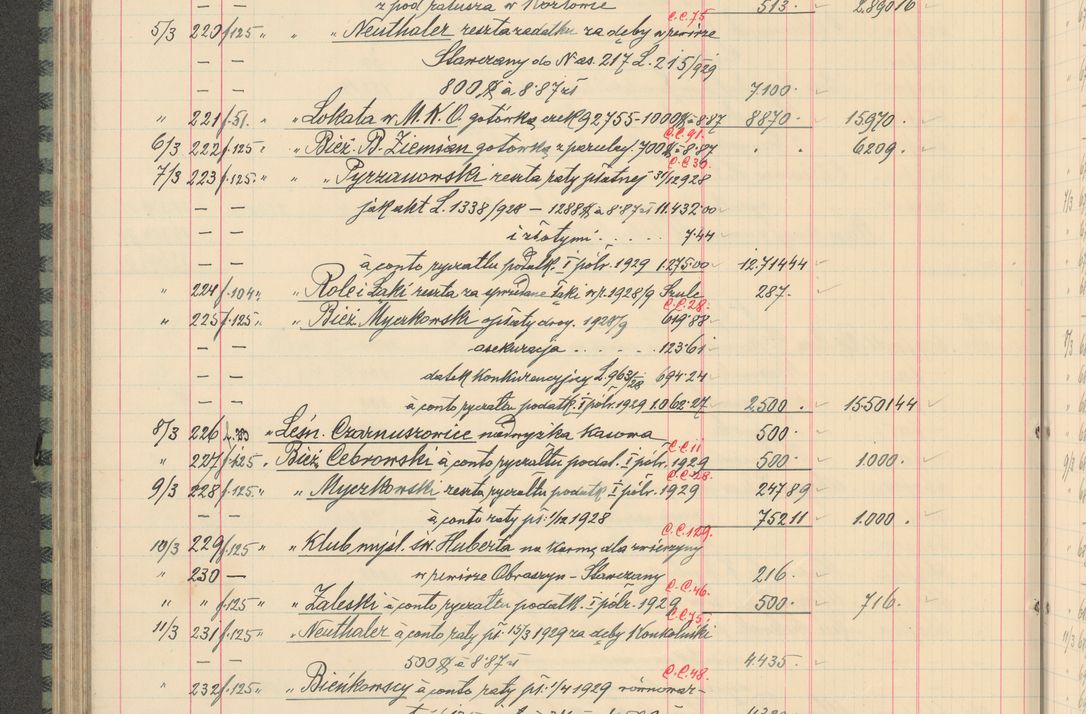 z pod ratusza w Kozłowie 513· 2.890 16
C.C.75
5/3 220 f.125 " " " Neuthaler reszta zadatku za dęby w rewirze
— — Stawczany do Nas. 217 L. 215/929
— — 800 $ à 8·87 zł 7100·
" 221 f.51. " Lokata w M.K.O. gotówką czek 92755 - 1000 $ à 8·87 8870· 15970·
C.C.91.
6/3 222 f.125 " " Bież. B. Ziemian gotówką z parcelacy. 700 $ à 8·87 · · 6209·
C.C.36.
7/3 223 f.125 " " " Pyrzanowski reszta raty płatnej 31/12 928
— — jak akt L. 1338/928 — 1288 $ à 8·87 zł 11.432·00
— — i złotymi . . . . . 7·44
— — à conto ryczałtu podatk. I półr. 1929 1.275·00 12.714 44
" 224 f.104 " " Role i Łąki reszta za sprzedane łąki w r. 1928/9 Szule 287·
C.C.28.
" 225 f.125 " " Bież. Myczkowski opłaty drog. 1928/9 619·88
— — asekuracja . . . . . 123·61
— — datek konkurencyjny L. 963/28 694·24
— — à conto ryczałtu podatk. I półr. 1929 1.062·27 2500· 15501 44
8/3 226 " Leśn. Czarnuszowice nadwyżka kasowa 500·
C.C.11
" 227 f.125 " Bież. Cebrowski à conto ryczałtu podat. I półr. 1929 500· 1.000·
C.C.28.
9/3 228 f.125 " " Myczkowski reszta ryczałtu podatk. I półr. 1929 247 89
— — à conto raty pł. 1/12 1928 752 11 1.000·
C.C.129.
10/3 229 f.125 " " Klub myśl. św. Huberta na karmę dla zwierzyny
" 230 — w rewirze Obroszyn - Stawczany 216·
C.C.46.
" " f.125 " " Zaleski à conto ryczałtu podatk. I półr. 1929 500· 716·
C.C.75.
11/3 231 f.125 " " Neuthaler à conto raty pł. 15/3 1929 za dęby Konkolniki
— — 500 $ à 8·87 zł 4435·
C.C.48.
" 232 f.125 " " Bieńkowscy à conto raty pł. 1/4 1929 równowar-